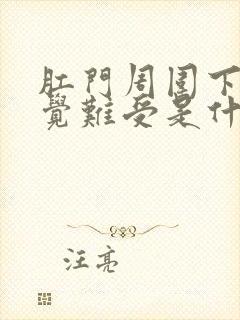 肛門周圍下
覺難受是什
汪亮